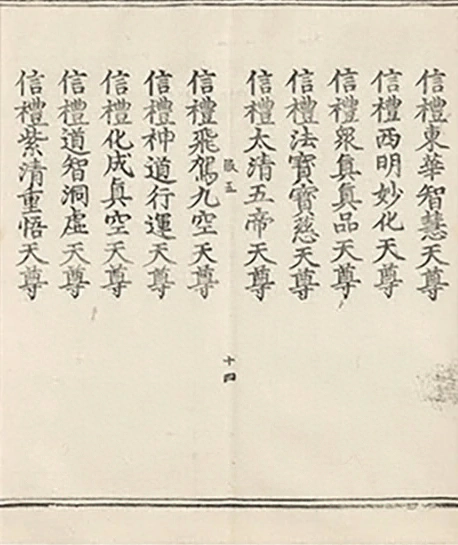 信禮東華智慧天尊
信禮西明妙化天尊
信禮衆真真品天尊
信禮法寶寶慈天尊
信禮太清五帝天尊
敢五
十四
信禮飛駕九空天尊
信禮神道行運天尊
信禮化成真空天尊
信禮道智洞虛天尊
信禮紫清重悟天尊